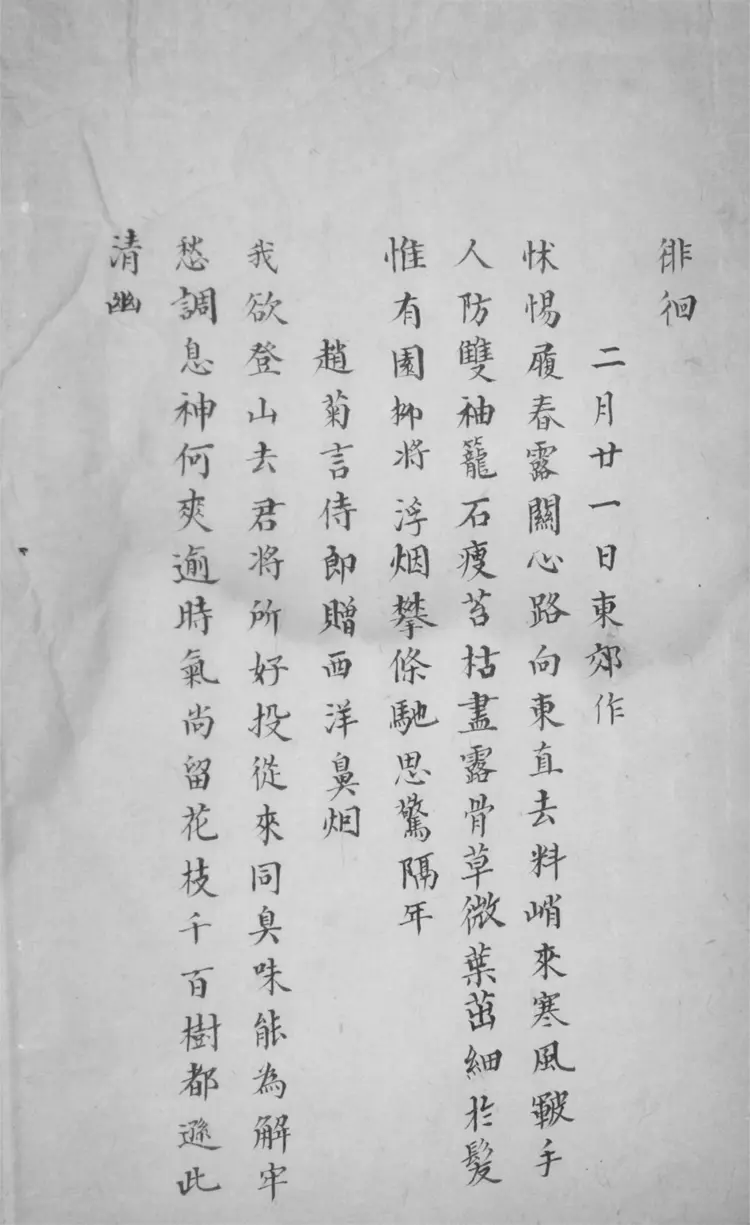 徘徊
二月廿一日東郊作
怵惕履春露關心路向東直去料峭來寒風皸手
人防雙袖籠石瘦苔枯盡露骨草微葉茁細於髮
惟有園柳將浮烟攀條馳思驚隔年
趙菊言侍郎贈西洋鼻烟
我欲登山去君將所好投從來同臭味能為解牢
愁調息神何爽逾時氣尚留花枝千百樹都遜此
清幽